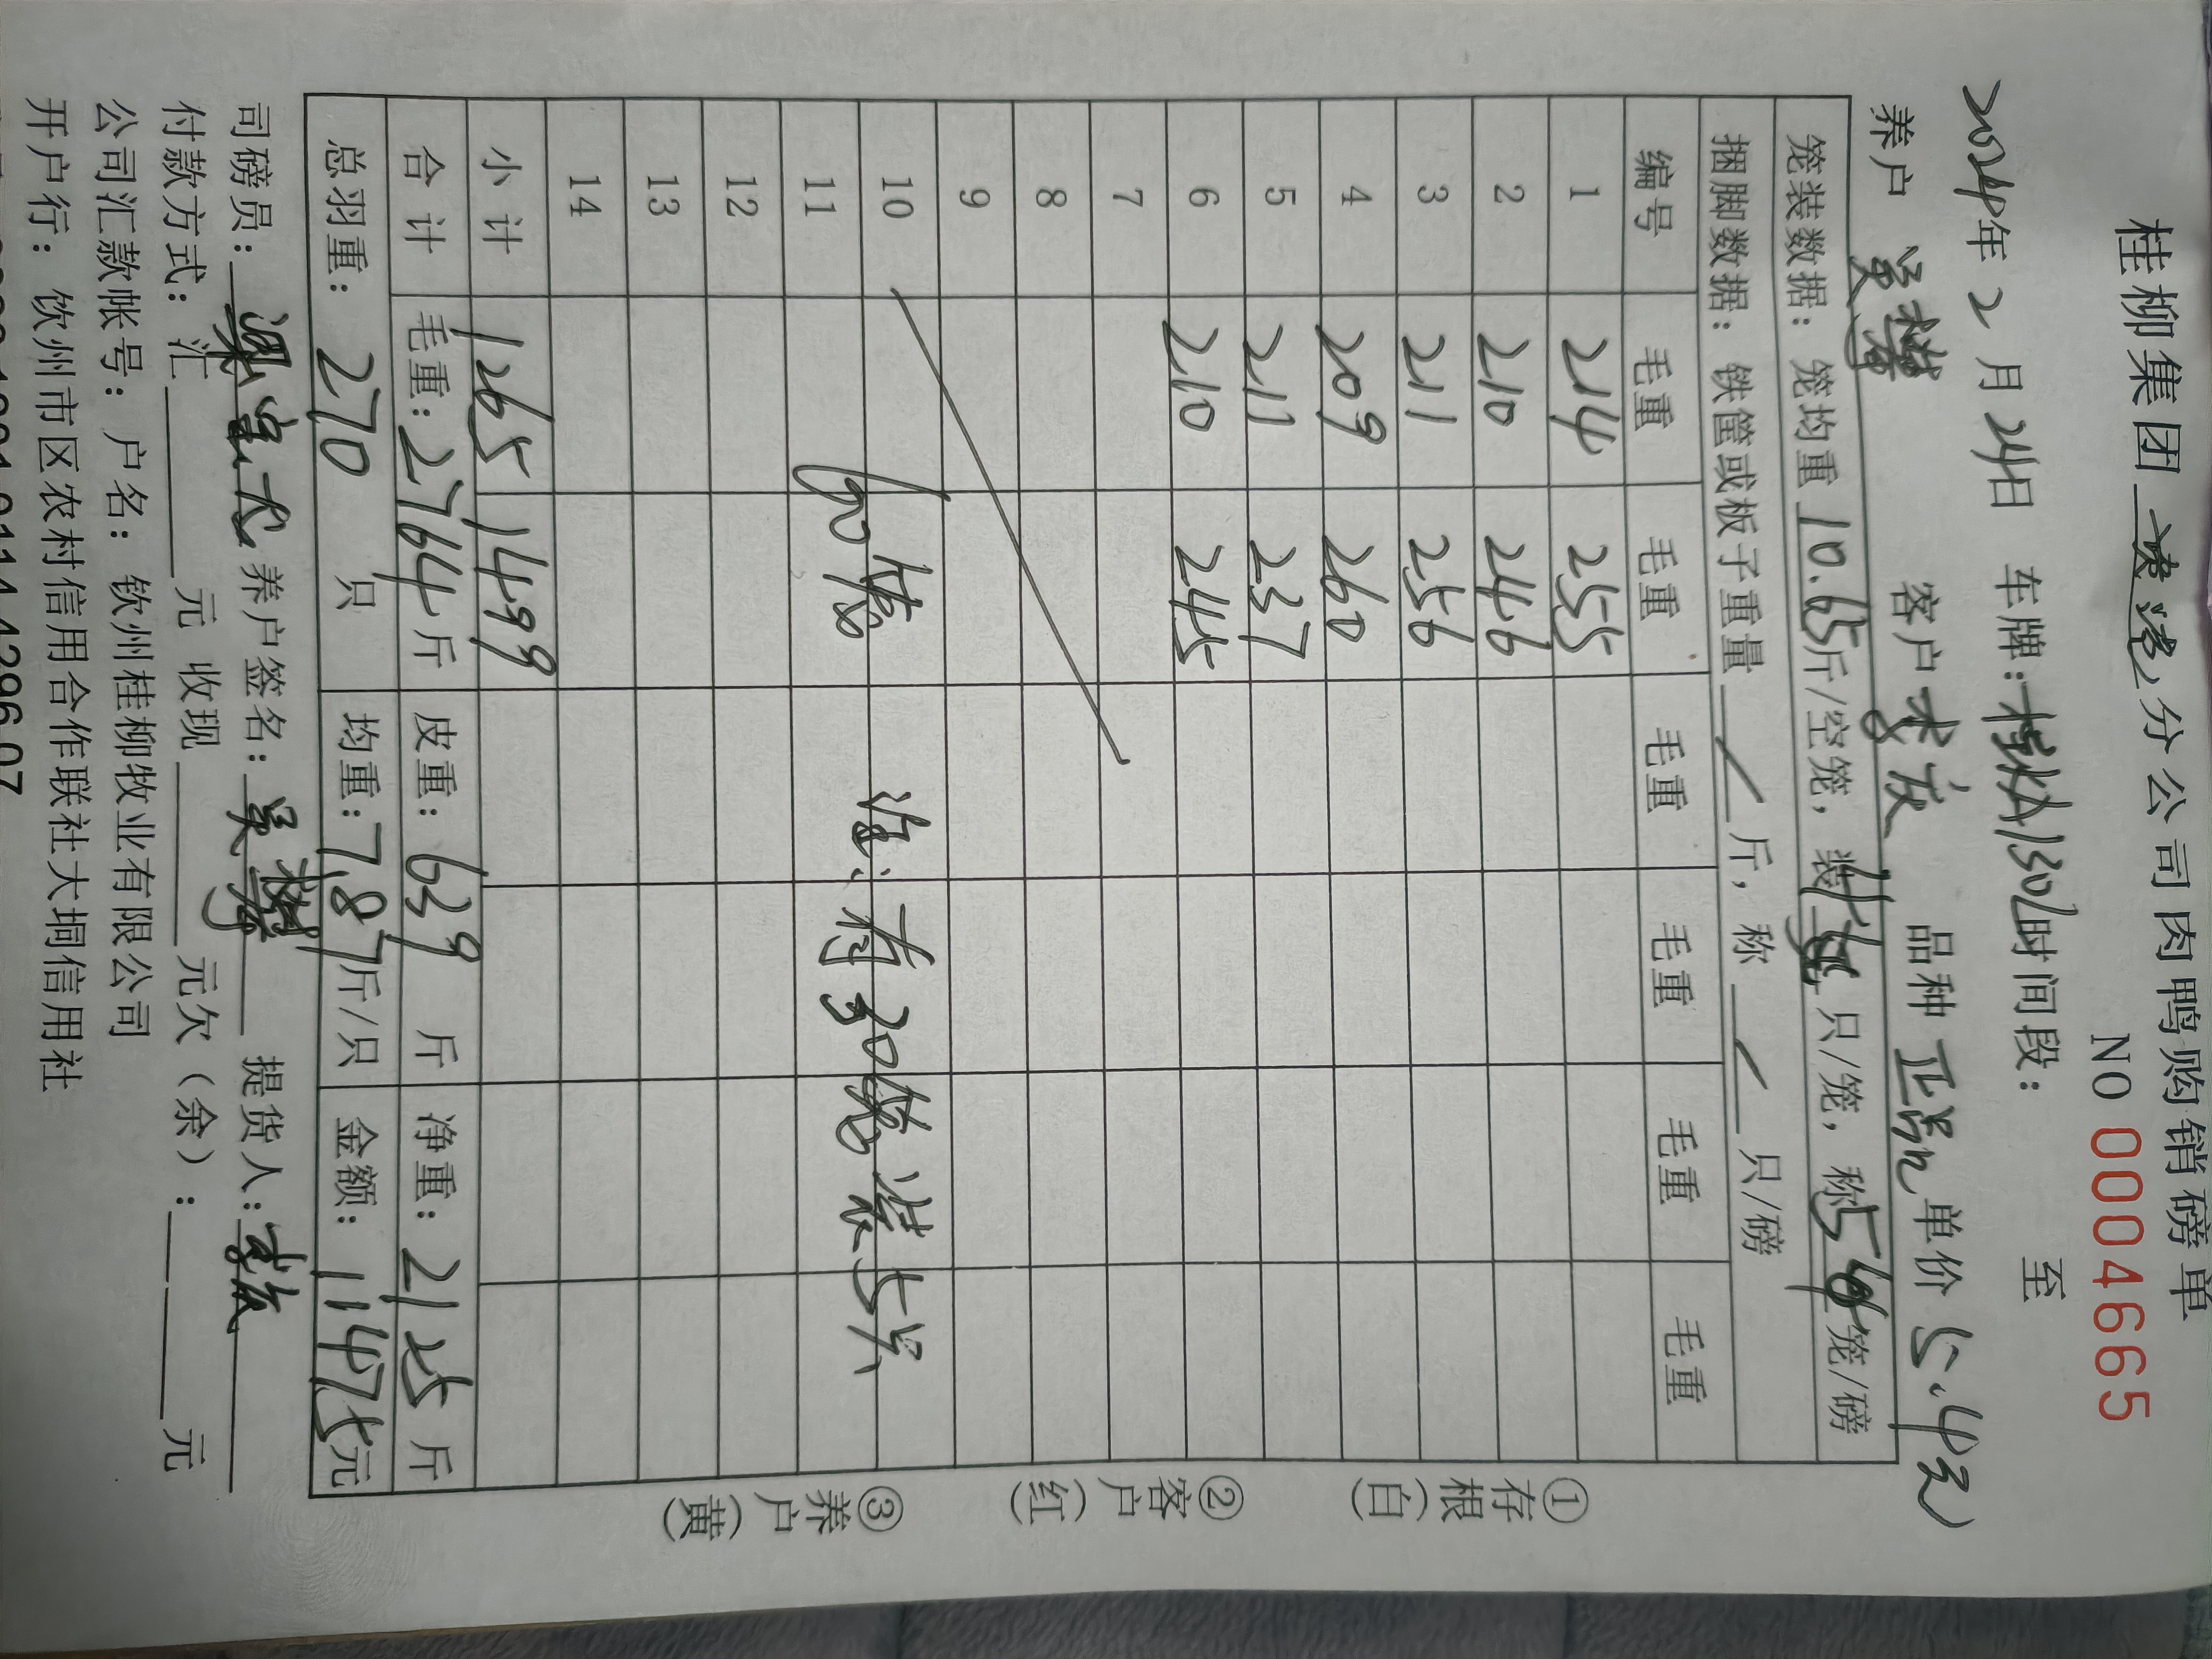 桂柳集团 分公司肉鸭购销磅单
NO 0004665
2024年2月24日 车牌: 时间段: 至
养户 吴 客户 李 品种 正品 单价 5.4元
笼装数据: 笼均重 10.65斤/空笼, 装 只/笼, 称5 笼/磅
捆脚数据: 铁筐或板子重量 / 斤, 称 / 只/磅
编号 毛重 毛重 毛重 毛重 毛重 毛重
1 214 255
2 210 246
3 211 256
4 209 260
5 211 237
6 210 245
7
8
9
10
11
60笼 注:有30笼装5只
12
13
14
小计 1265 1499
合计 毛重: 2764斤 皮重: 639 斤 净重: 2125 斤
总羽重: 270 只 均重: 7.87斤/只 金额: 11475元
①存根(白) ②客户(红) ③养户(黄)
司磅员: 梁 养户签名: 吴 提货人: 李
付款方式: 汇 元 收现 元欠(余): 元
公司汇款帐号: 户名: 钦州桂柳牧业有限公司
开户行: 钦州市区农村信用合作联社大垌信用社